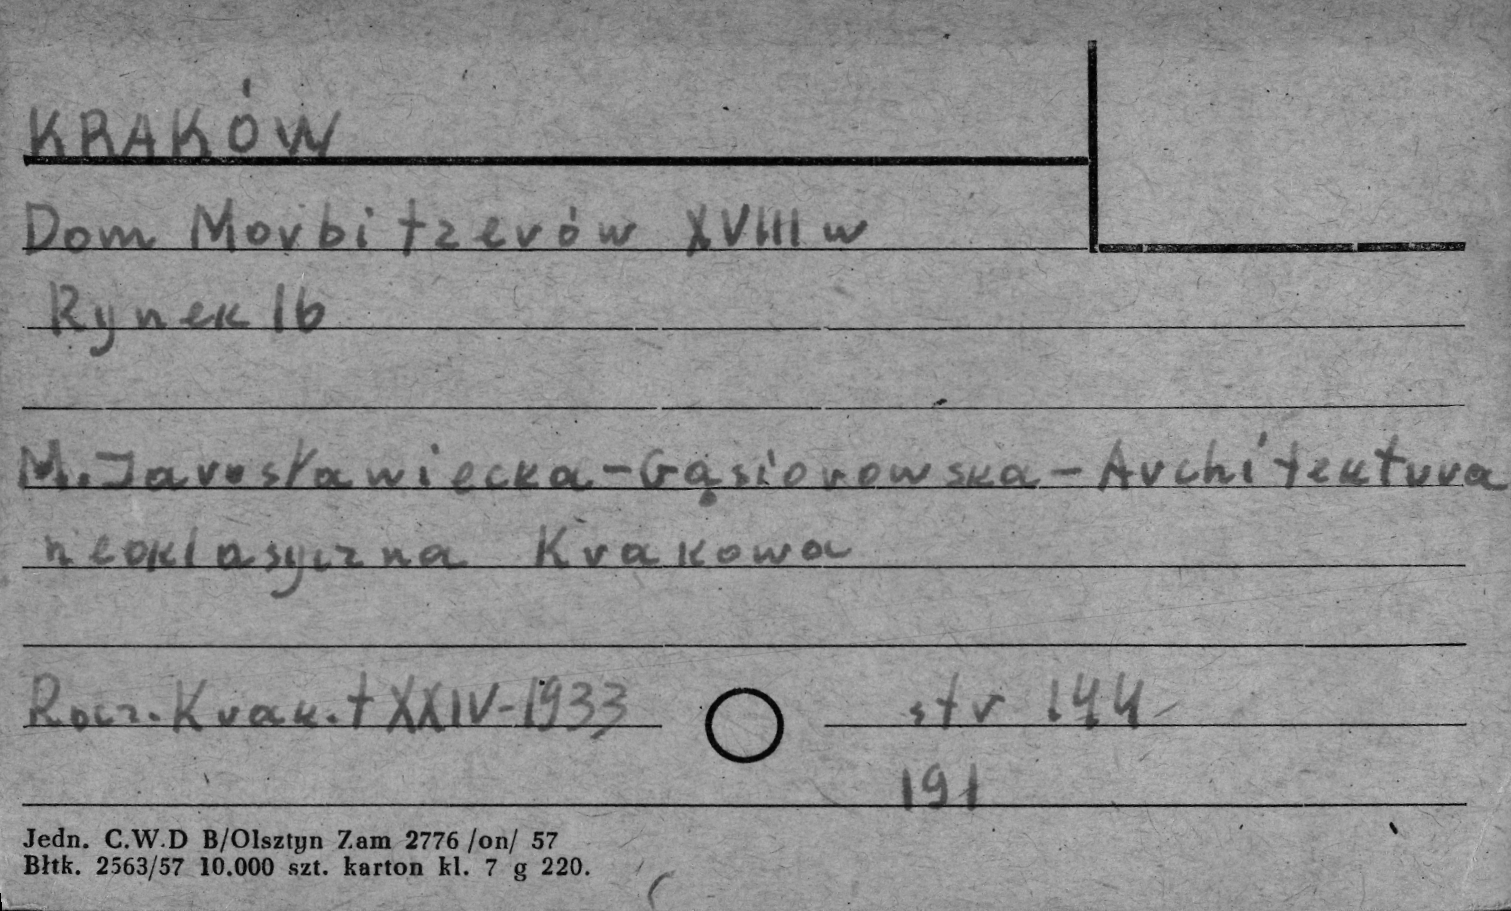 KRAKÓW
Dom Morbitzerów XVIII w
Rynek 16
M. Jarosławiecka-Gąsiorowska - Architektura
neoklasyczna Krakowa
Rocz. Krak. t XXIV-1933 str 144
191
Jedn. C.W.D B/Olsztyn Zam 2776 /on/ 57
Błtk. 2563/57 10.000 szt. karton kl. 7 g 220.